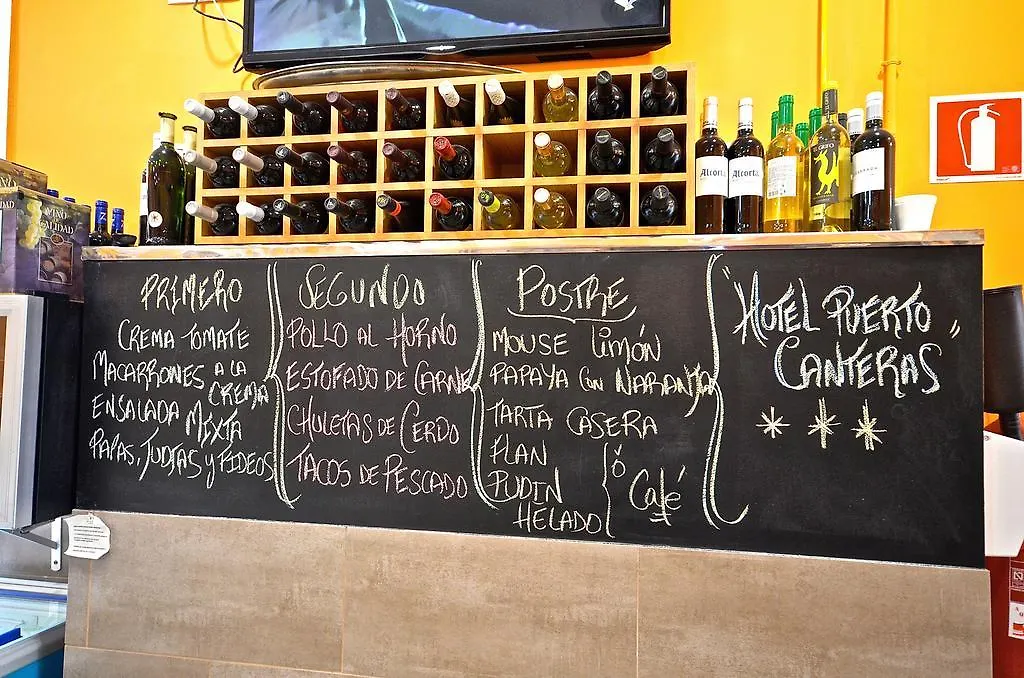 PRIMERO
CREMA TOMATE
MACARRONES A LA
CREMA
ENSALADA MIXTA
PAPAS, JUDIAS Y FIDEOS
SEGUNDO
POLLO AL HORNO
ESTOFADO DE CARNE
CHULETAS DE CERDO
TACOS DE PESCADO
POSTRE
MOUSE LIMÓN
PAPAYA CON NARANJA
TARTA CASERA
FLAN
PUDIN
HELADO
Ó
Café
"HOTEL PUERTO
CANTERAS"
* * *
Alcorta
Alcorta
EL GRIFO